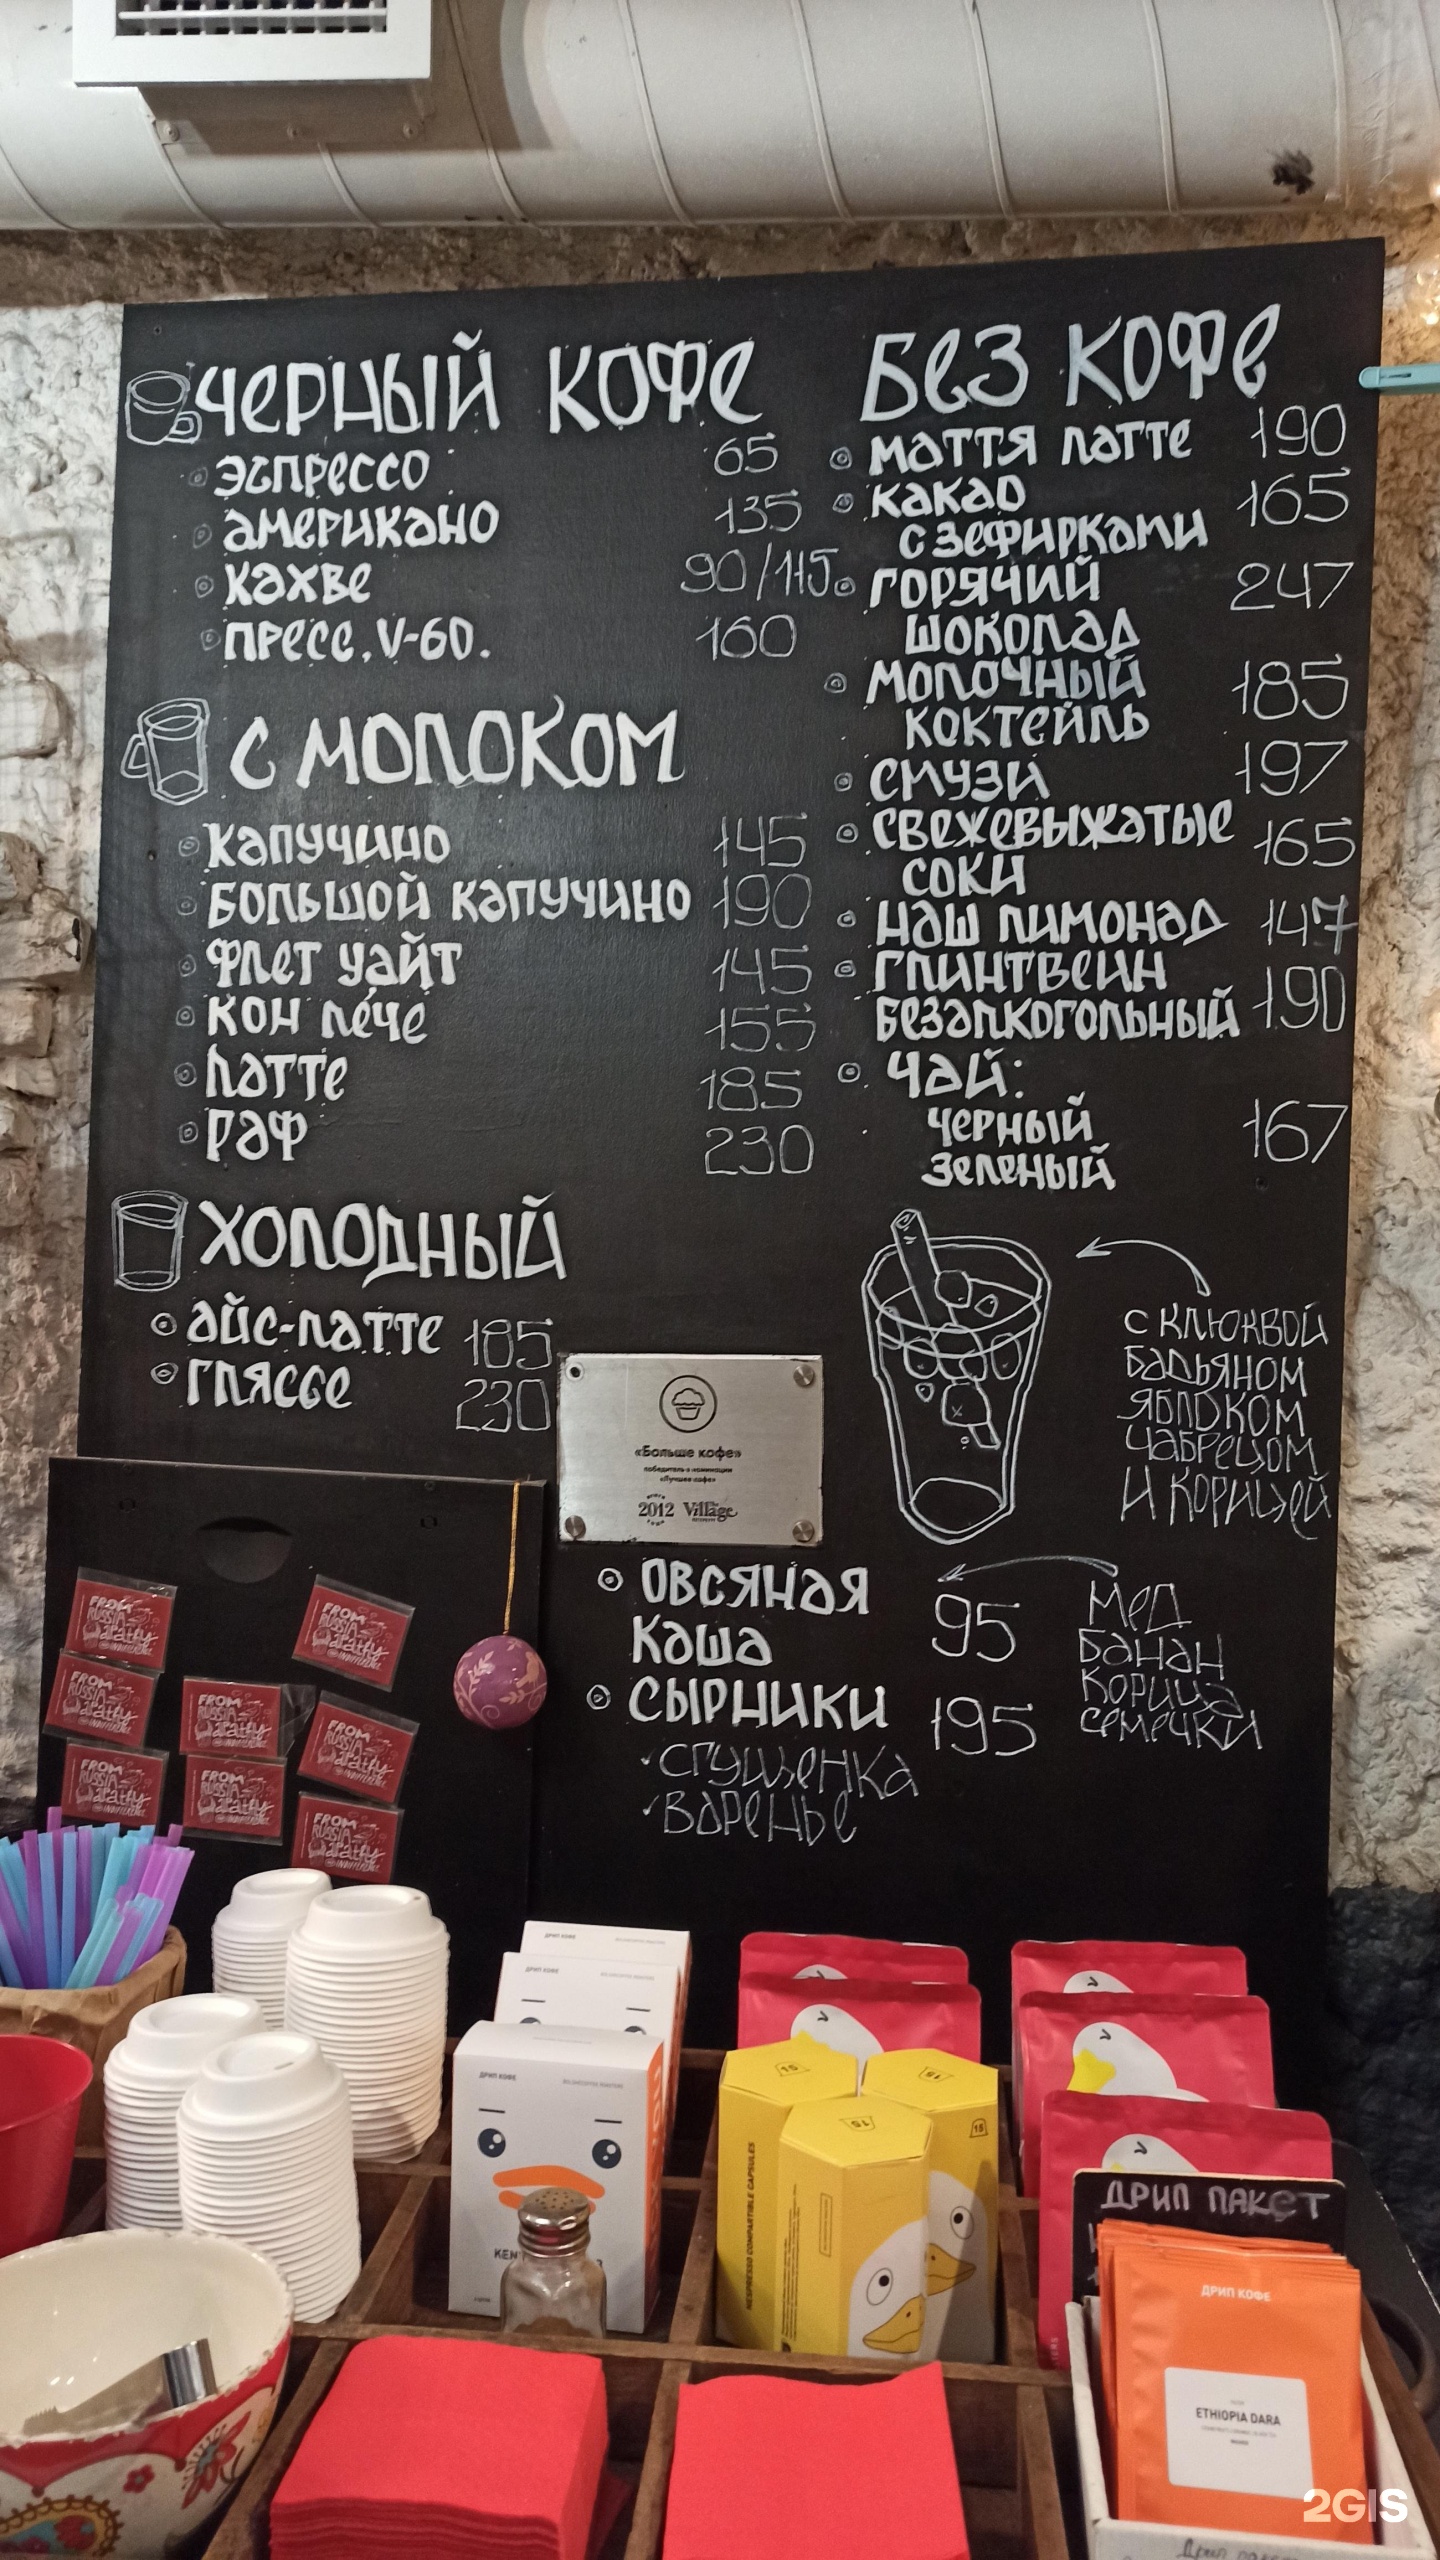 ЧЕРНЫЙ КОФЕ
ЭСПРЕССО 65
АМЕРИКАНО 135
КАХВЕ 90/115
ПРЕСС, V-60. 160
С МОЛОКОМ
КАПУЧИНО 145
БОЛЬШОЙ КАПУЧИНО 190
ФЛЕТ УАЙТ 145
КОН ЛЕЧЕ 155
ЛАТТЕ 185
РАФ 230
ХОЛОДНЫЙ
АЙС-ЛАТТЕ 185
ГЛЯССЕ 230
БЕЗ КОФЕ
МАТТЯ ЛАТТЕ 190
КАКАО 165
С ЗЕФИРКАМИ
ГОРЯЧИЙ 247
ШОКОЛАД
МОЛОЧНЫЙ 185
КОКТЕЙЛЬ
СМУЗИ 197
СВЕЖЕВЫЖАТЫЕ 165
СОКИ
НАШ ЛИМОНАД 147
ГЛИНТВЕИН
БЕЗАЛКОГОЛЬНЫЙ 190
ЧАЙ:
ЧЕРНЫЙ 167
ЗЕЛЕНЫЙ
С КЛЮКВОЙ
БАДЬЯНОМ
ЯБЛОКОМ
ЧАБРЕЦОМ
И КОРИЦЕЙ
«Больше кофе»
победитель в номинации
«Лучшее кафе»
2012 Village
ОВСЯНАЯ
КАША 95
СЫРНИКИ 195
СГУЩЕНКА
ВАРЕНЬЕ
МЕД
БАНАН
КОРИЦА
СЕМЕЧКИ
FROM
RUSSIA
FROM
RUSSIA
FROM
RUSSIA
FROM
RUSSIA
FROM
RUSSIA
FROM
RUSSIA
FROM
RUSSIA
FROM
RUSSIA
ДРИП КОФЕ
ДРИП КОФЕ
ДРИП КОФЕ
KEN
15
15
15
15
NESPRESSO COMPATIBLE CAPSULES
ДРИП ПАКЕТ
ДРИП КОФЕ
ETHIOPIA DARA
2GIS